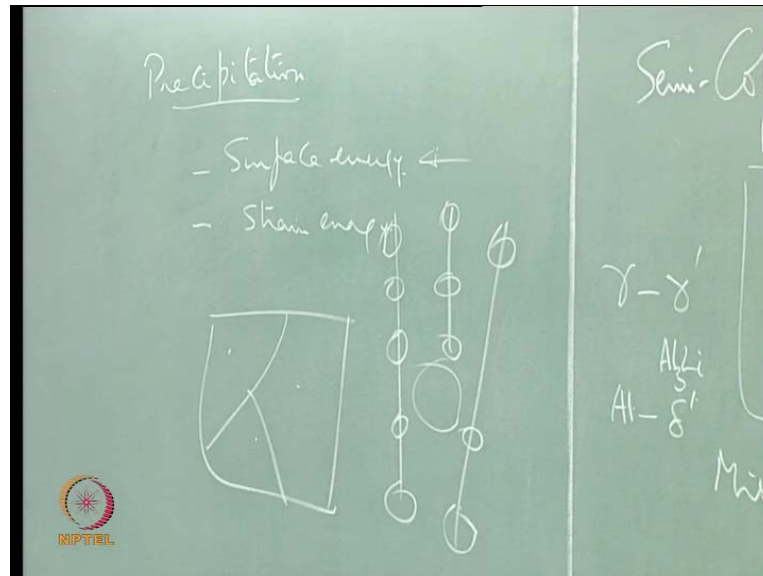 Precipitation
- Surface energy ←
- Strain energy
Semi-Co
γ - γ'
Al3Li
Al - δ'
Mis
NPTEL